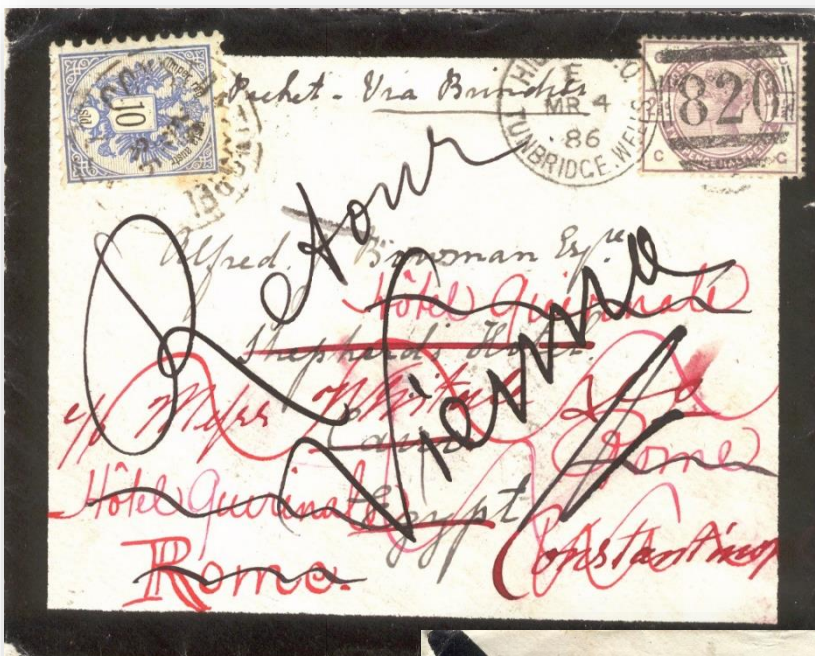 10
Packet - Via Brindisi
E
MR 4
86
TUNBRIDGE. WELLS
820
C C
Retour
Alfred. Bowman Esqre
Hôtel Quirinale
Shepherd's Hotel
c/o Messrs
Cairo
Vienne
Rome
Hôtel Quirinale
Egypt
Constantinop
Rome.